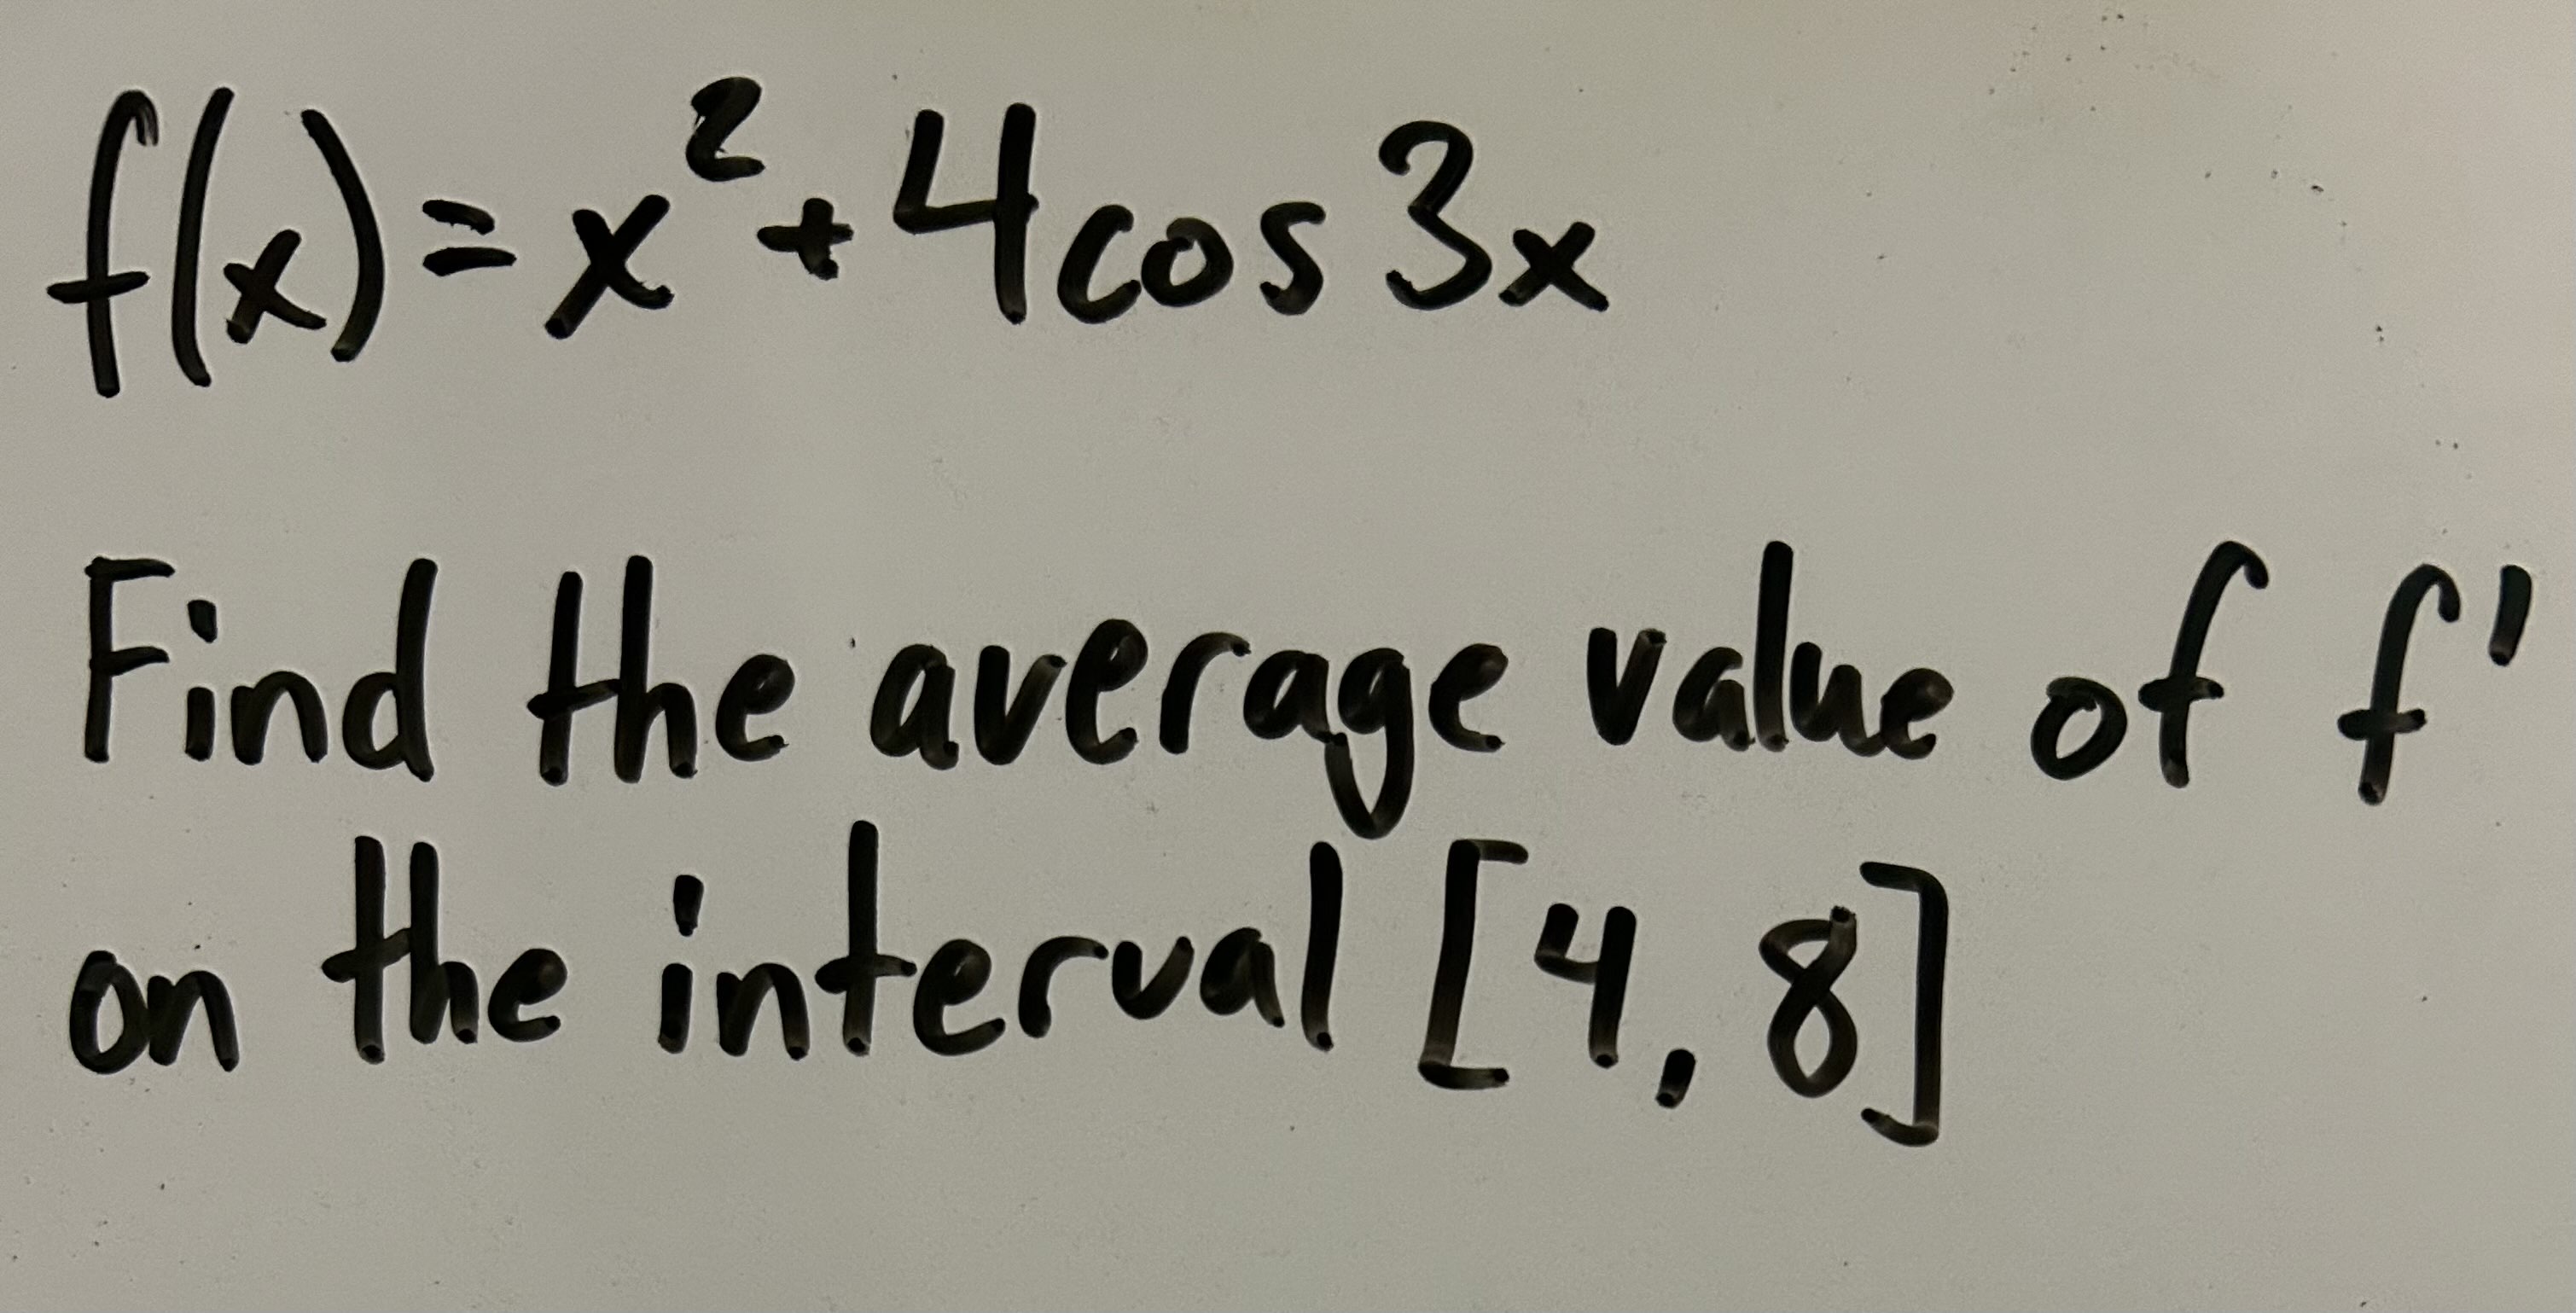 f(x)=x²+4cos3x
Find the average value of f'
on the interval [4,8]